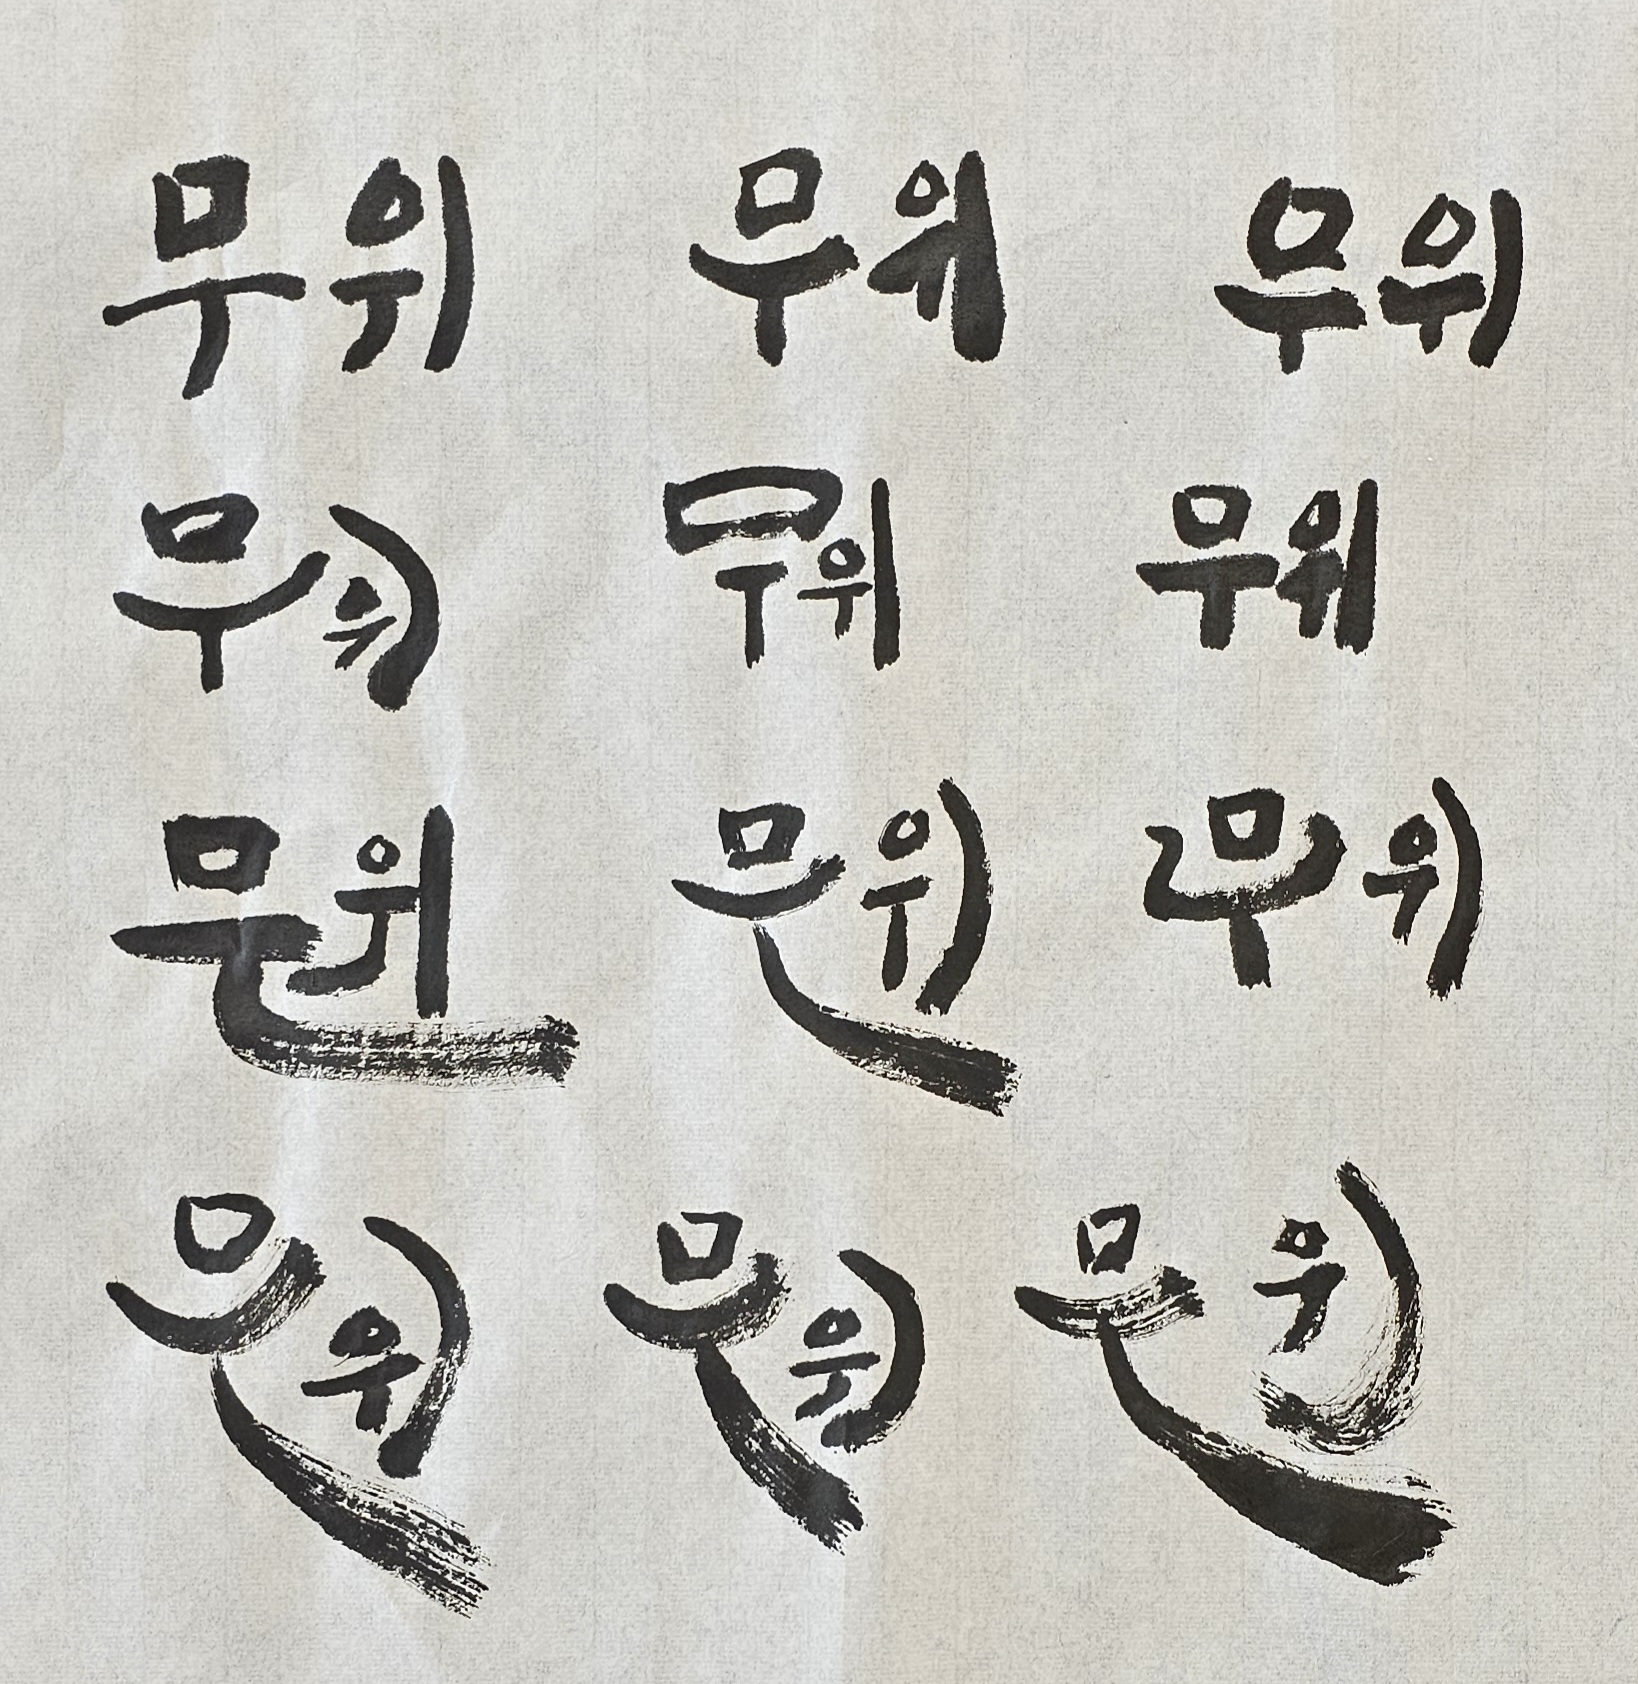 무위 무위 무위
무위 무위 무위
무위 무위 무위
무위 무위 무위